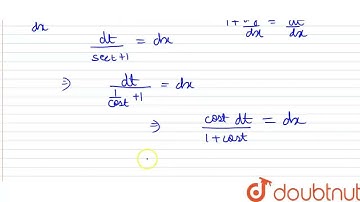 dx
1 + dy/dx = dt/dx
dt/(sect+1) = dx
⇒ dt/(1/cost + 1) = dx
⇒ cost dt/(1+cost) = dx
doubtnut